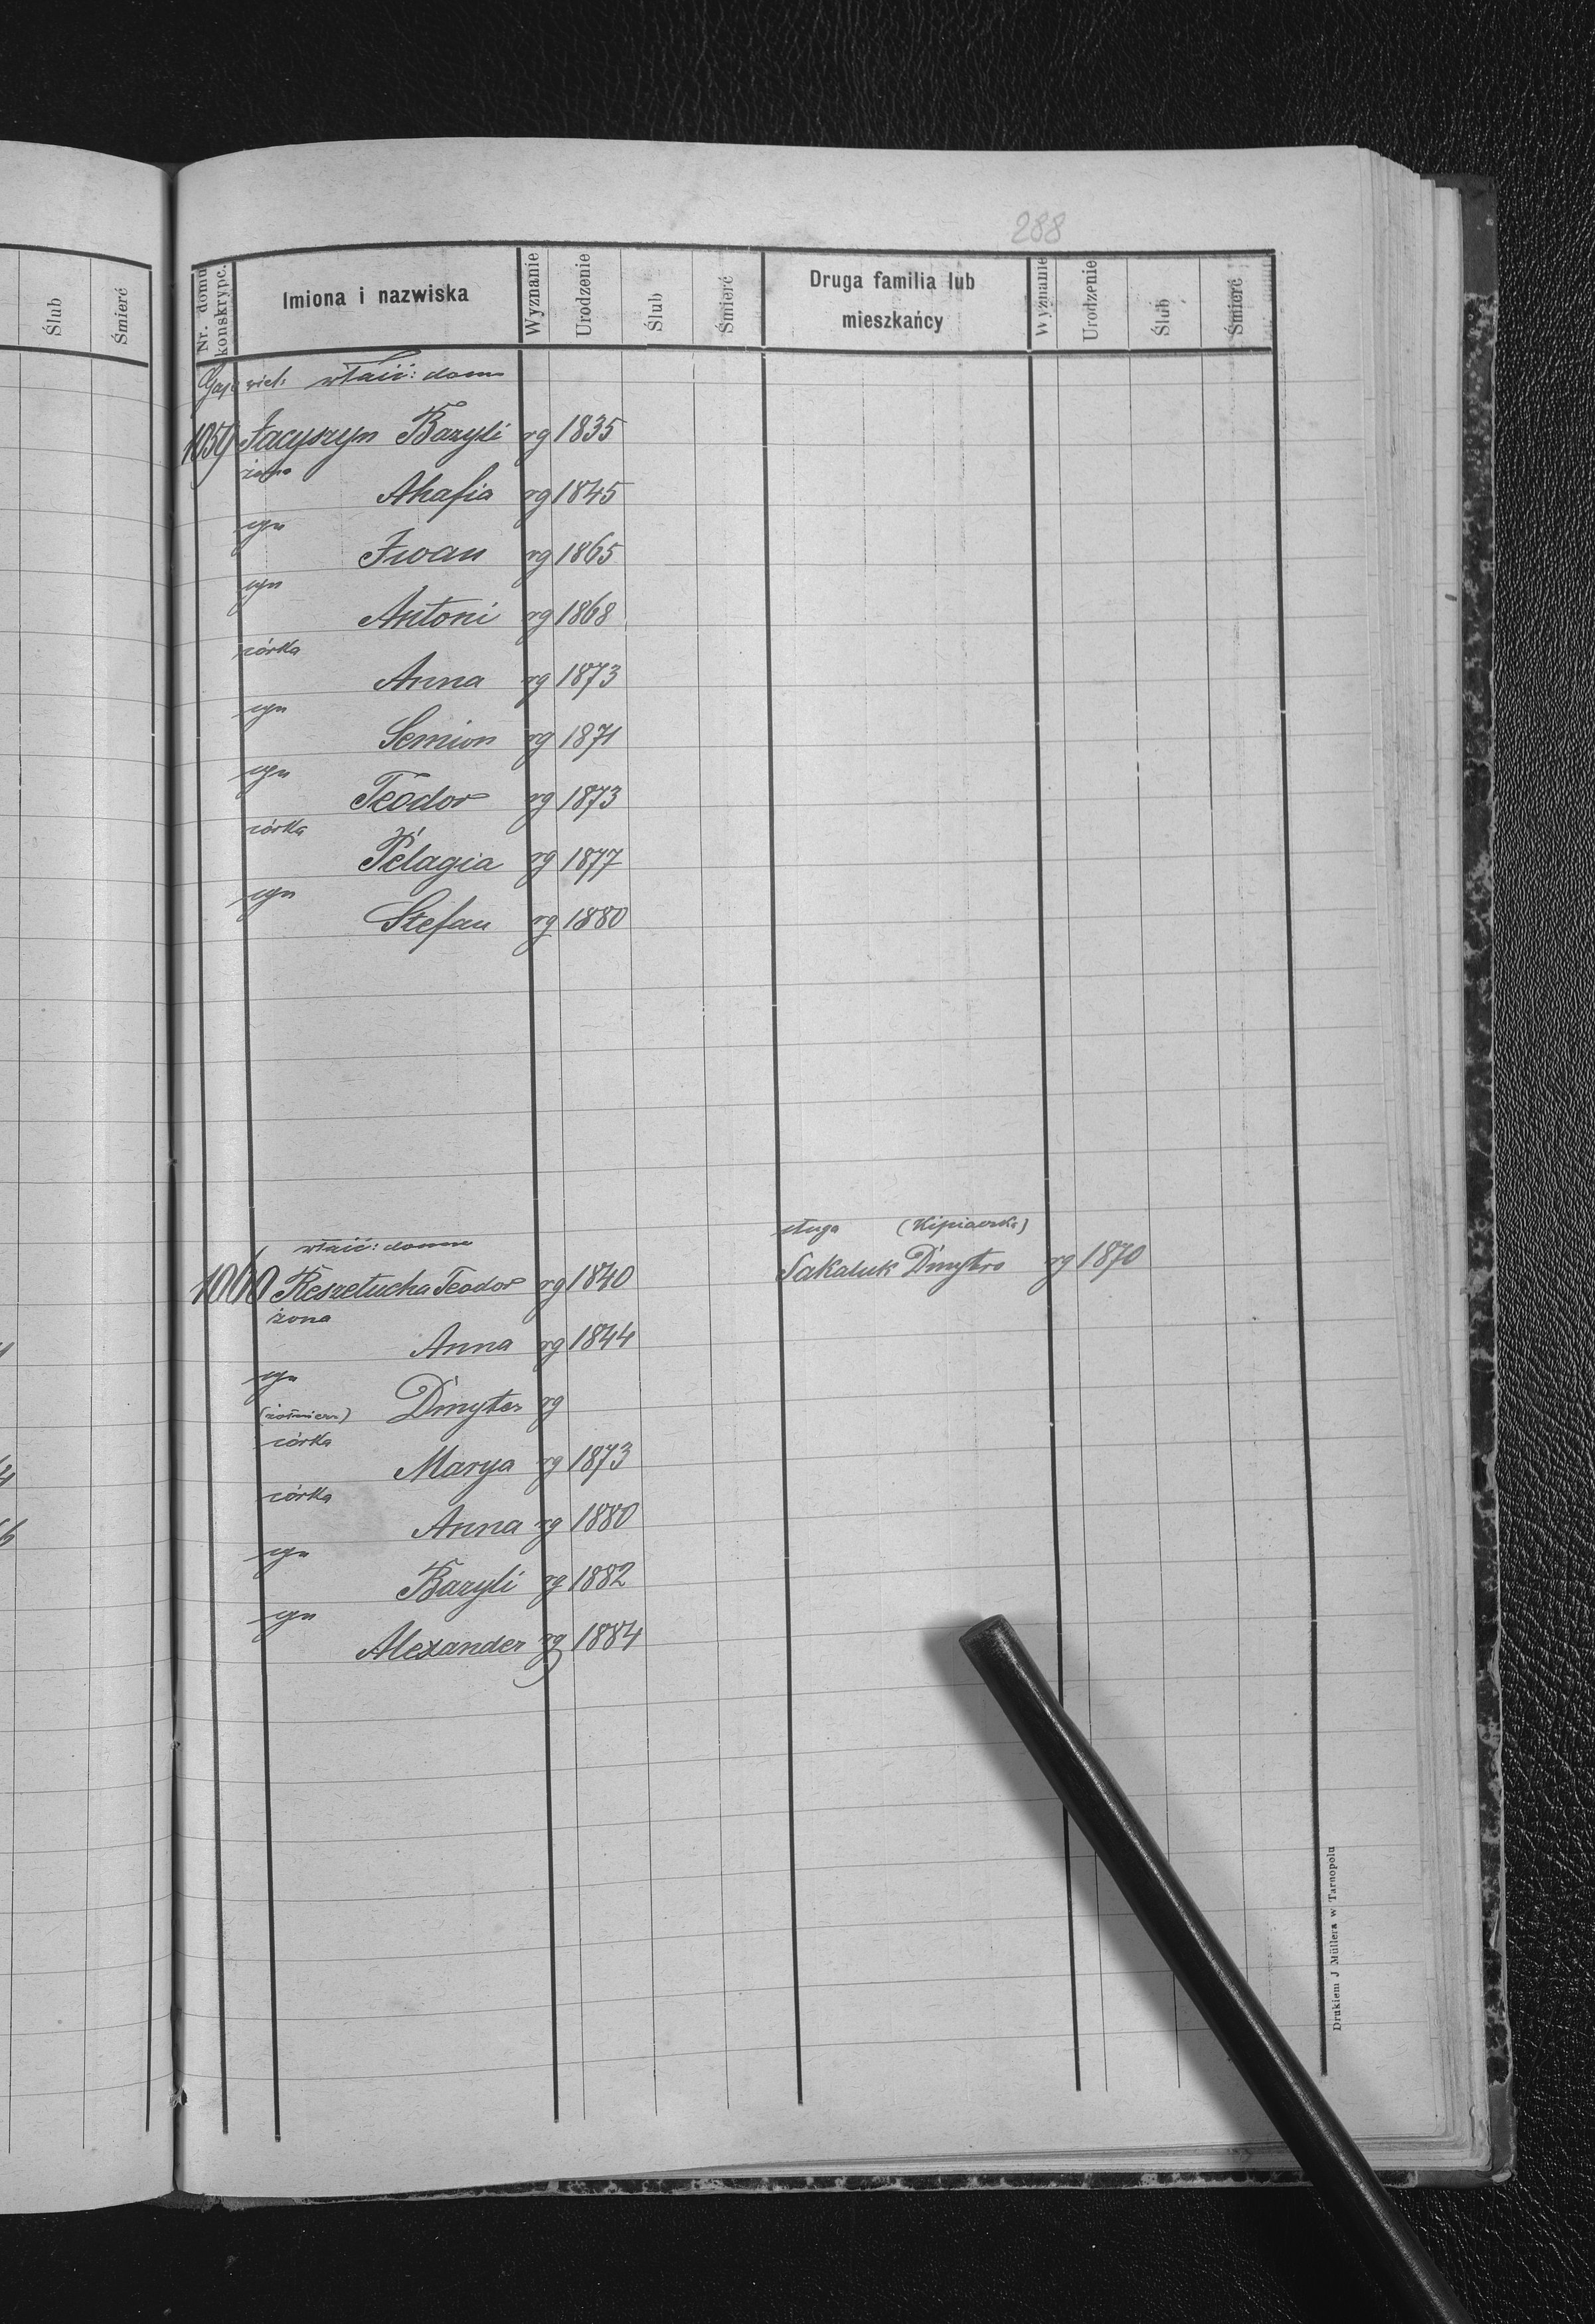 288
Ślub Śmierć
Nr. domu konskrypc. Imiona i nazwiska Wyznanie Urodzenie Ślub Śmierć Druga familia lub mieszkańcy Wyznanie Urodzenie Ślub Śmierć
Gaje wiel: właść: domu
1059 Łacyszyn Bazyli rg 1835
żona
Ahafia rg 1845
syn
Iwan rg 1865
syn
Antoni rg 1868
córka
Anna rg 1873
syn
Semion rg 1871
syn
Teodor rg 1873
córka
Pelagia rg 1877
syn
Stefan rg 1880
właść: domu
sługa (Kipiaczka)
1060 Reszetucha Teodor rg 1840 Sakaluk Dmytro rg 1870
żona
Anna rg 1844
syn
(żołnierz) Dmyter rg
córka
Marya rg 1873
córka
Anna rg 1880
syn
Bazyli rg 1882
syn
Alexander rg 1884
Drukiem J Müllera w Tarnopolu